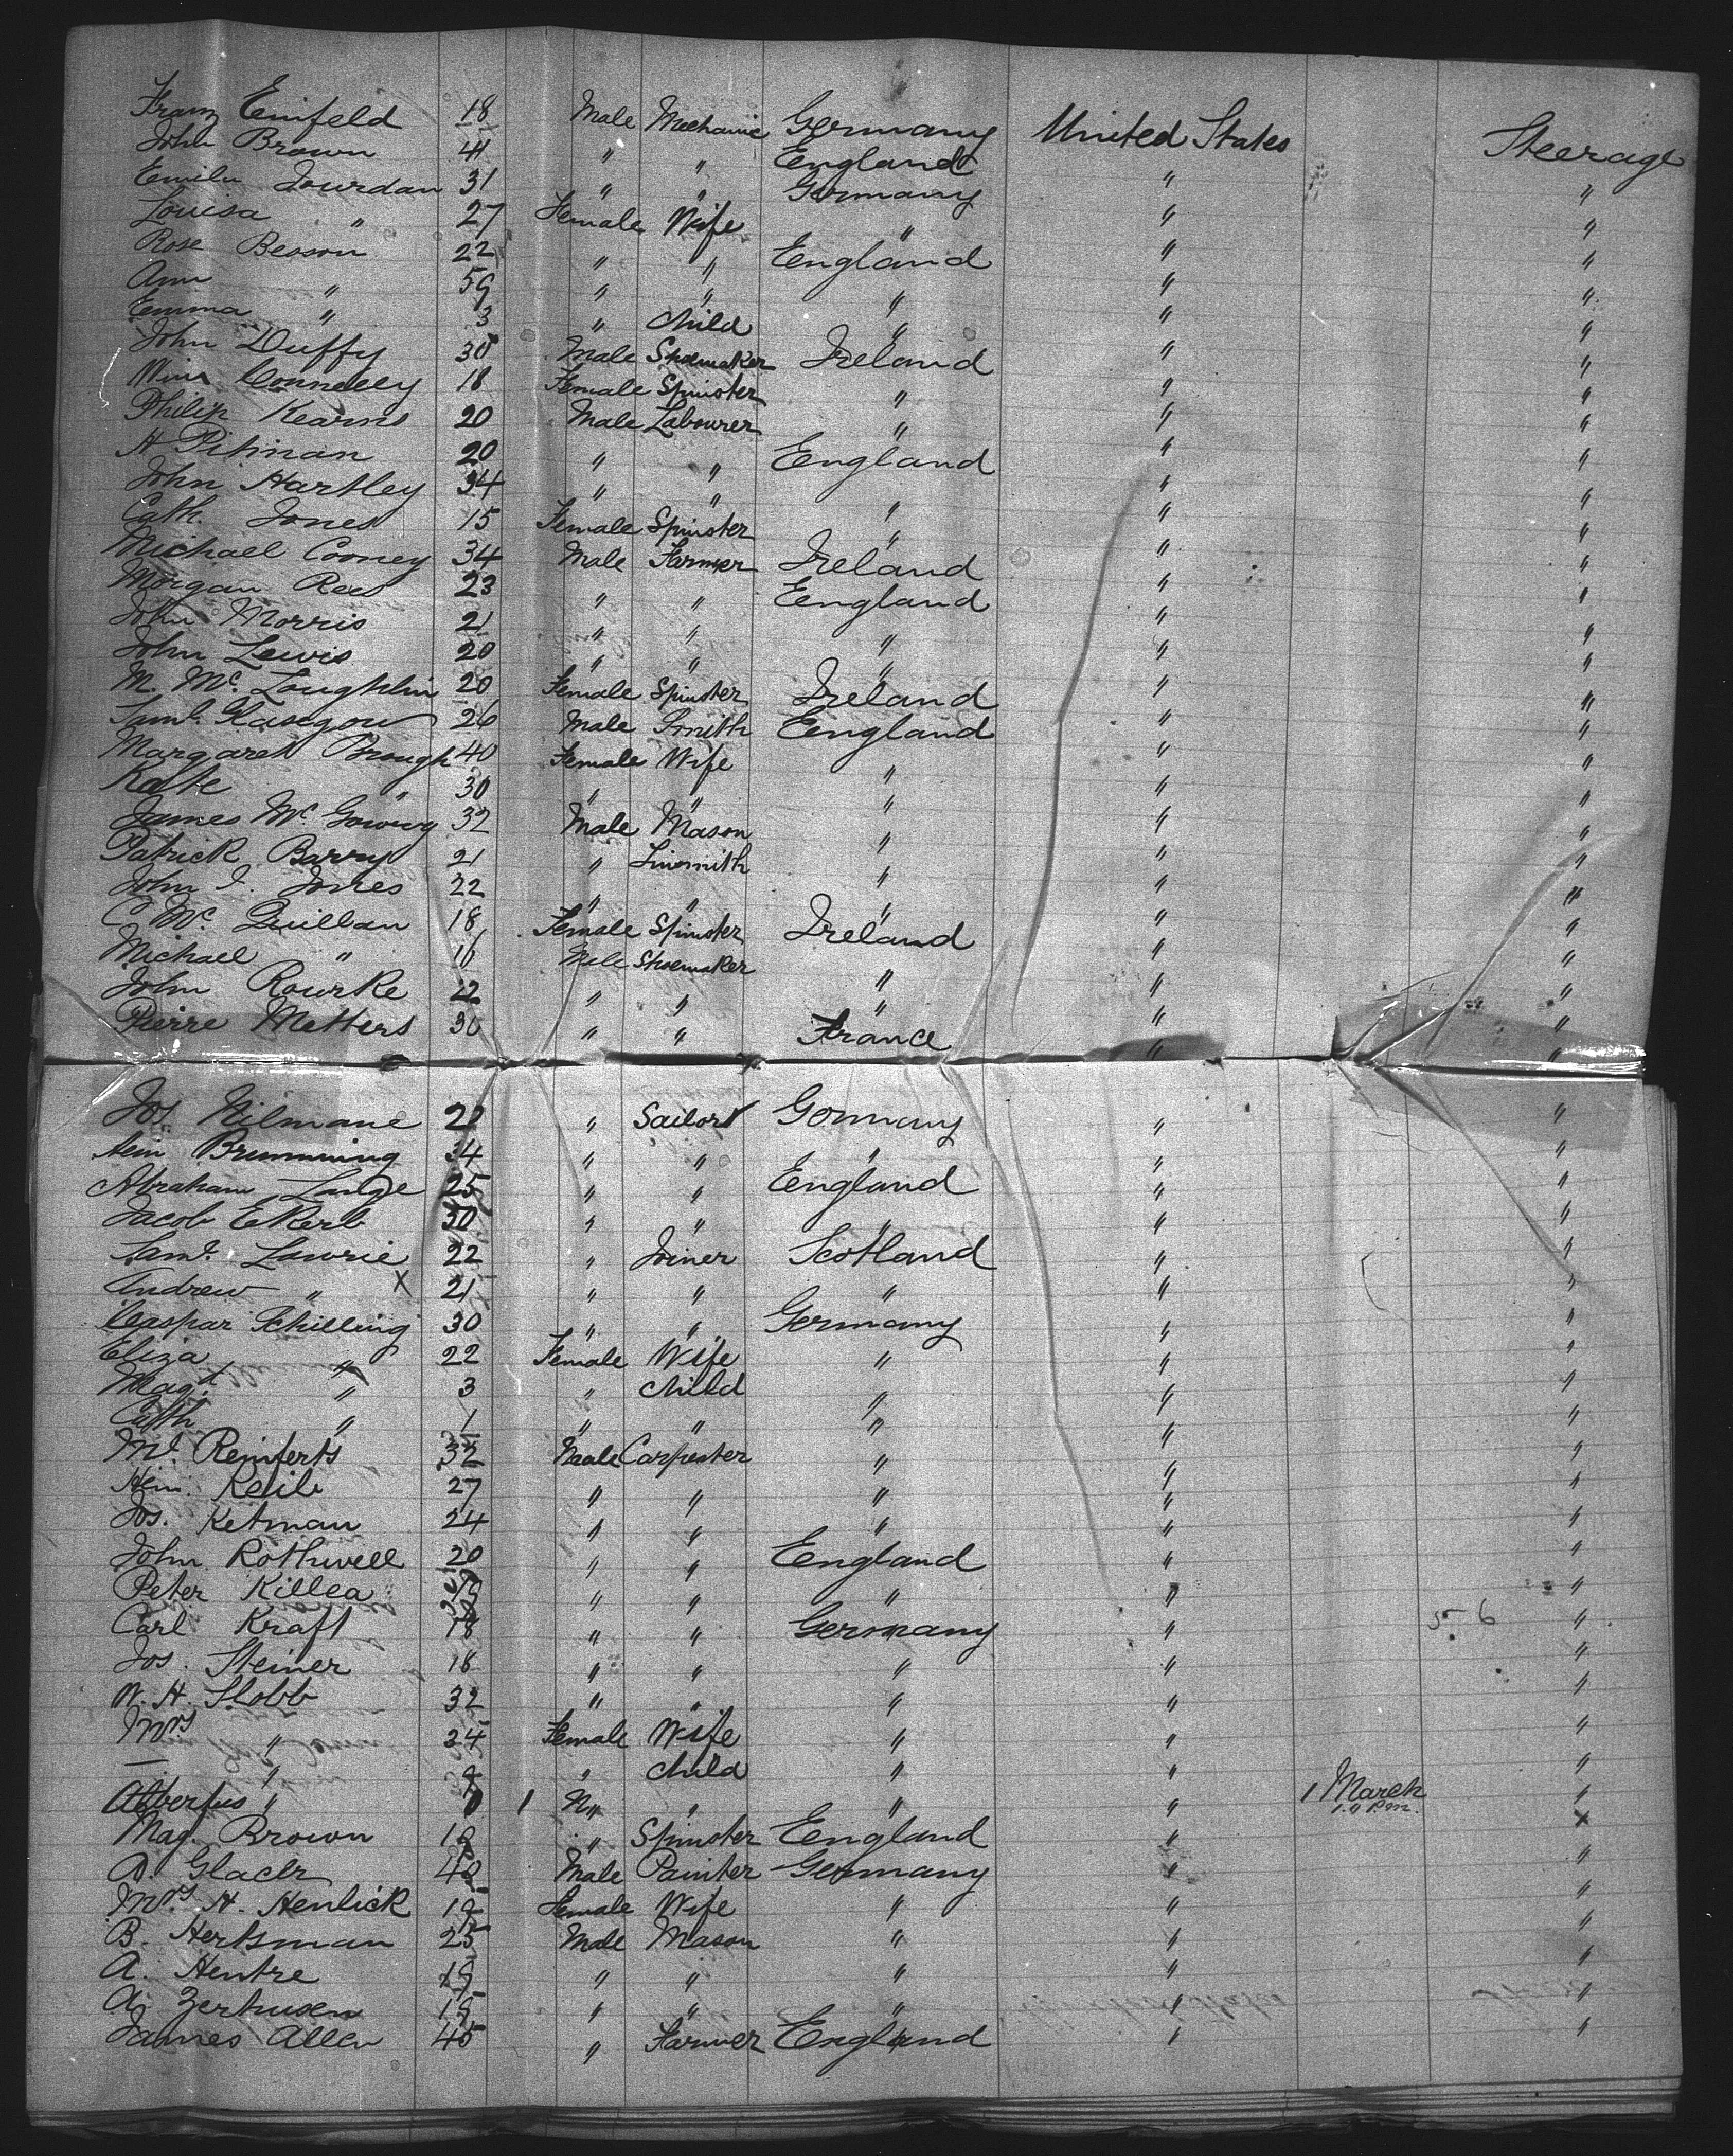 Franz Einfeld 18 Male Mechanic Germany United States Steerage
John Brown 41 " " England " "
Emile Jourdan 31 " " Germany " "
Louisa " 27 Female Wife " " "
Rose Besson 22 " " England " "
Ann " 59 " " " " "
Emma " 3 " Child " " "
John Duffy 30 Male Shoemaker Ireland " "
Winr Connelly 18 Female Spinster " " "
Philip Kearns 20 Male Labourer " " "
H Pitman 20 " " England " "
John Hartley 34 " " " " "
Cath. Jones 15 Female Spinster " " "
Michael Cooney 34 Male Farmer Ireland " "
Morgan Rees 23 " " England " "
John Morris 21 " " " " "
John Lewis 20 " " " " "
M. Mc. Loughlin 20 Female Spinster Ireland " "
Saml. Glasgow 26 Male Smith England " "
Margaret Brough 40 Female Wife " " "
Kate " 30 " " " " "
James Mc Gowry 32 Male Mason " " "
Patrick Barry 21 " Tinsmith " " "
John I. Jones 22 " " " " "
C. Mc. Quillan 18 Female Spinster Ireland " "
Michael " 16 Male Shoemaker " " "
John Rourke 22 " " " " "
Pierre Metters 30 " " France " "
Jos. Nilmane 22 " Sailor Germany " "
Hein Brumming 34 " " " " "
Abraham Lange 25 " " England " "
Jacob Ekert 30 " " " " "
Saml. Lawrie 22 " Joiner Scotland " "
Andrew " X 21 " " " " "
Caspar Schilling 30 " " Germany " "
Eliza " 22 Female Wife " " "
Magt. " 3 " Child " " "
Cath " 1 " " " " "
Mt. Reinferts 32 Male Carpenter " " "
Hein. Keil 27 " " " " "
Jos. Ketman 24 " " " " "
John Rothwell 20 " " England " "
Peter Killea " " " " "
Carl Kraft 18 " " Germany " 5-6 "
Jos. Steiner 18 " " " " "
W. H. Slobb 32 " " " " "
Mrs " 24 Female Wife " " "
— " " Child " " "
Albertus " 1 " " " " 1 March "
1.0 P.m. x
Mag. Brown 19 " Spinster England " "
A. Glaclr 40 Male Painter Germany " "
Mrs. H. Henlick 19 Female Wife " " "
B. Hertsman 25 Male Mason " " "
A. Hentre 19 " " " " "
A. Zerhusen 19 " " " " "
James Allen 45 " Farmer England " "